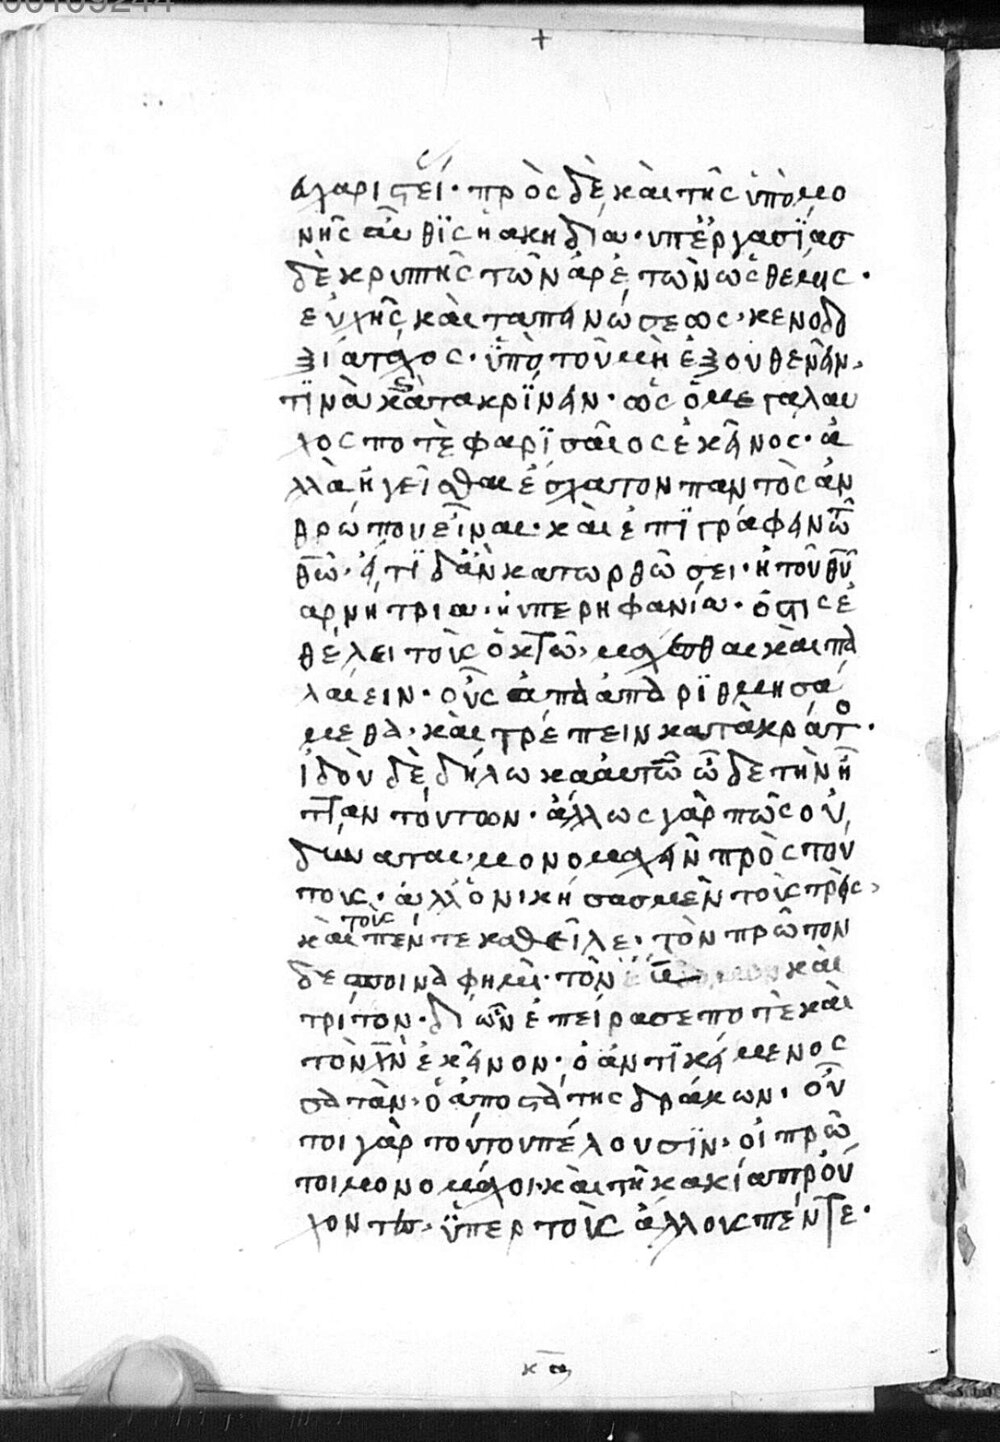 +
αχαριστεί· πρὸς δὲ καὶ τῆς ὑπομο
νῆς αὖ θϊς ἡ ακηδία· ὑπ ἐργασΐας
δὲ κρυπτῆς τῶν ἀρετῶν ὡς θέμις·
εὐχῆς καὶ ταπεινώσεως· κενοδο
ξί ατάχος· ὑπὸ τοῦ μὴ ἐξουθενεῖν·
τϊνὰ κατακρΐνειν· ὡς ὁ μεγάλαυ
χος ποτὲ φαρϊσαῖος ἐκεῖνος· ἀ
λλὰ ἡγεῖσθαι ἔσχατον παντὸς ἀν
θρώπου εἶναι· καὶ ἐπϊγράφειν τῶ
θῶ· εἴ τϊ δ ἂν κατωρθώσει· ἡ τοῦ θῦ
αρνήτρια· ἡ ὑπερηφανία· ὅστις ἐ
θέλει τοὺς ὀκτὼ· μάχεσθαι καὶ πα
λαίειν· οὓς ἀπαρϊθμησά
μεθα· καὶ τρέπειν κατὰ κράτο·
ἰδοὺ δὲ δηλῶ κα αυτῶ ὧδε τὴν ἧ
τταν τούτων· ἄλλως γὰρ πῶς οὐ
δύναται· μονομαχεῖν πρὸς τού
τους· ἀλλ ὁ νικήσας μὲν τοὺς τρεῖς·
καὶ τοὺς πέντε καθεῖλε· τὸν πρῶτον
δέσποινα φημὶ· τὸν καὶ
τρίτον· δι ὧν ἐπείρασε ποτὲ καὶ
τὸν χν ἐκεῖνον· ὁ ἀντϊκείμενος
σατὰν· ὁ ἀποστάτης δράκων· οὗ
τοι γὰρ τούτου πέλουσϊν· οἱ πρῶ
τοι μονομάχοι· καὶ τῆ κακία πρού
χοντες· ὑπὲρ τοὺς ἄλλους πέντε·